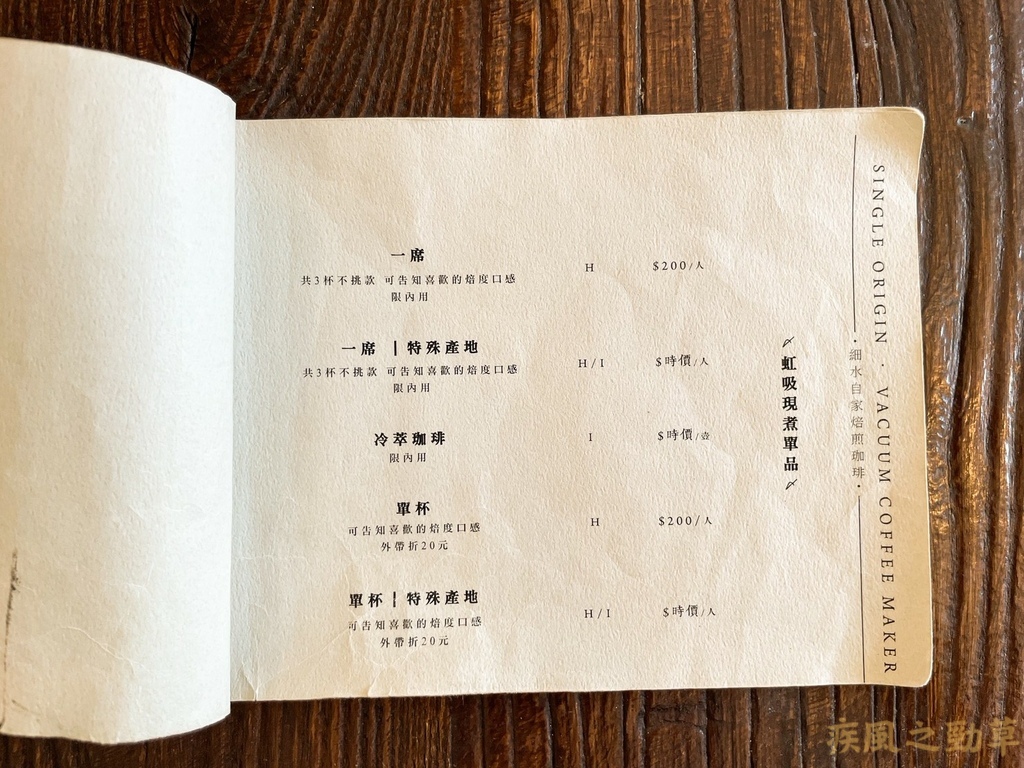 SINGLE ORIGIN · VACUUM COFFEE MAKER
·細水自家焙煎珈琲·
虹吸現煮單品
一席 H $200/人
共3杯不挑款 可告知喜歡的焙度口感
限內用
一席 | 特殊產地 H/I $時價/人
共3杯不挑款 可告知喜歡的焙度口感
限內用
冷萃珈琲 I $時價/壺
限內用
單杯 H $200/人
可告知喜歡的焙度口感
外帶折20元
單杯 | 特殊產地 H/I $時價/人
可告知喜歡的焙度口感
外帶折20元
疾風之勁草